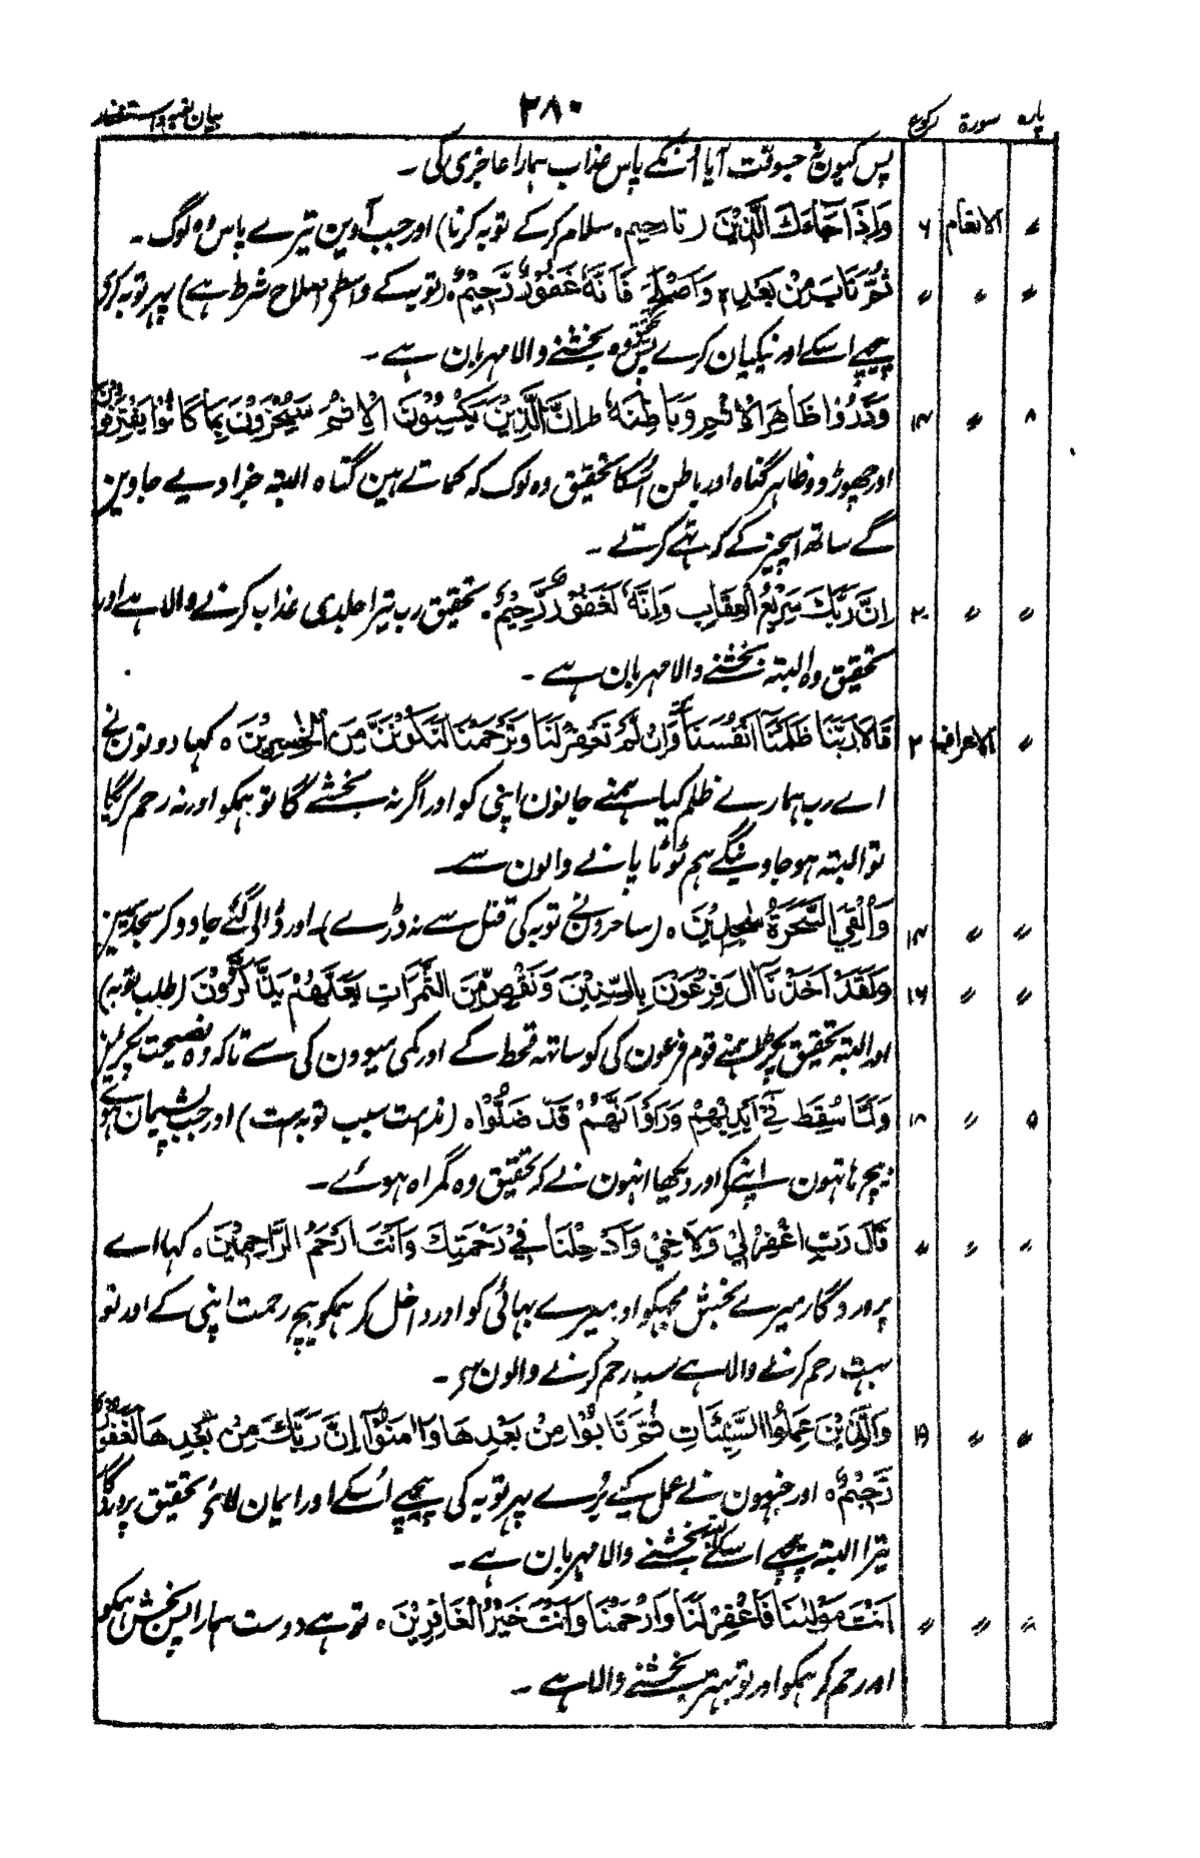 پارہ سورۃ رکوع ۲۸۰ بیان توبہ و استغفار
پس کیون نہ جسوقت آیا انکے پاس عذاب ہمارا عاجزی کی ۔
؍ الانعام ۶ وَاِذَا جَاءَكَ الَّذِيْنَ (تا رحیم۔ سلام کرکے توبہ کرنا) اور جب آوین تیرے پاس وہ لوگ ۔
〃 〃 〃 ثُمَّ تَابَ مِنْ بَعْدِهٖ وَاَصْلَحَ فَاَنَّهٗ غَفُوْرٌ رَّحِيْمٌ ۔ (توبہ کے واسطے اصلاح شرط ہے) پہر توبہ کری
پیچھے اسکے اور نیکیان کرے پس تحقیق وہ بخشنے والا مہربان ہے ۔
۸ 〃 ۱۴ وَذَرُوْا ظَاهِرَ الْاِثْمِ وَبَاطِنَهٗ ط اِنَّ الَّذِيْنَ يَكْسِبُوْنَ الْاِثْمَ سَيُجْزَوْنَ بِمَا كَانُوْا يَقْتَرِفُوْنَ
اور چھوڑو و ظاہر گناہ اور باطن اسکا تحقیق وہ لوک کہ کماتے ہین گناہ البتہ جزا دیے جاوین
گے ساتھ اسچیز کے کہ تہے کرتے ۔
〃 〃 ۲۰ اِنَّ رَبَّكَ سَرِيْعُ الْعِقَابِ وَاِنَّهٗ لَغَفُوْرٌ رَّحِيْمٌ ۔ تحقیق رب تیرا جلدی عذاب کرنے والا ہے اور
تحقیق وہ البتہ بخشنے والا مہربان ہے ۔
〃 الاعراف ۲ قَالَا رَبَّنَا ظَلَمْنَا اَنْفُسَنَا وَاِنْ لَّمْ تَغْفِرْ لَنَا وَتَرْحَمْنَا لَنَكُوْنَنَّ مِنَ الْخٰسِرِيْنَ ہ کہا دونون نے
اے رب ہمارے ظلم کیا ہمنے جانون اپنی کو اور اگر نہ بخشے گا تو ہمکو اور نہ رحم کریگا
تو البتہ ہوجاوینگے ہم ٹوٹا پانے والون سے
〃 〃 ۱۴ وَاُلْقِيَ السَّحَرَةُ سٰجِدِيْنَ ۔ (ساحرونے توبہ کی قتل سے نہ ڈرے) اور ڈالے گئے جادوگر سجدیمین
〃 〃 ۱۶ وَلَقَدْ اَخَذْنَا اٰلَ فِرْعَوْنَ بِالسِّنِيْنَ وَنَقْصٍ مِّنَ الثَّمَرَاتِ لَعَلَّهُمْ يَذَّكَّرُوْنَ (طلب توبہ)
اور البتہ تحقیق پکڑا ہمنے قوم فرعون کی کو ساتہہ قحط کے اور کمی میوون کی سے تاکہ وہ نصیحت پکڑین
۹ 〃 ۱۸ وَلَمَّا سُقِطَ فِيْ اَيْدِيْهِمْ وَرَاَوْا اَنَّهُمْ قَدْ ضَلُّوْا ۔ (ندامت سبب توبہ ست) اور جب پشیمان ہوئے
بیچ ہاتہون اپنیکے اور دیکھا انہون نے کہ تحقیق وہ گمراہ ہوئے ۔
〃 〃 〃 قَالَ رَبِّ اغْفِرْ لِيْ وَلِاَخِيْ وَاَدْخِلْنَا فِيْ رَحْمَتِكَ وَاَنْتَ اَرْحَمُ الرَّاحِمِيْنَ ۔ کہا اے
پروردگار میرے بخش مجہکو اور میرے بہائی کو اور داخل کر ہمکو بیچ رحمت اپنی کے اور تو
بہت رحم کرنے والا ہے سب رحم کرنے والون سے ۔
〃 〃 ۱۹ وَالَّذِيْنَ عَمِلُوا السَّيِّئَاتِ ثُمَّ تَابُوْا مِنْ بَعْدِهَا وَاٰمَنُوْا اِنَّ رَبَّكَ مِنْ بَعْدِهَا لَغَفُوْرٌ
رَّحِيْمٌ ہ اور جنہون نے عمل کیے بُرے پہر توبہ کی پیچھے اُسکے اور ایمان لائے تحقیق پروردگار
تیرا البتہ پیچھے اسکے بخشنے والا مہربان ہے ۔
〃 〃 〃 اَنْتَ مَوْلٰنَا فَاغْفِرْ لَنَا وَارْحَمْنَا وَاَنْتَ خَيْرُ الْغَافِرِيْنَ ۔ تو ہے دوست ہمارا پس بخش ہمکو
اور رحم کر ہمکو اور تو بہتر بخشنے والا ہے ۔